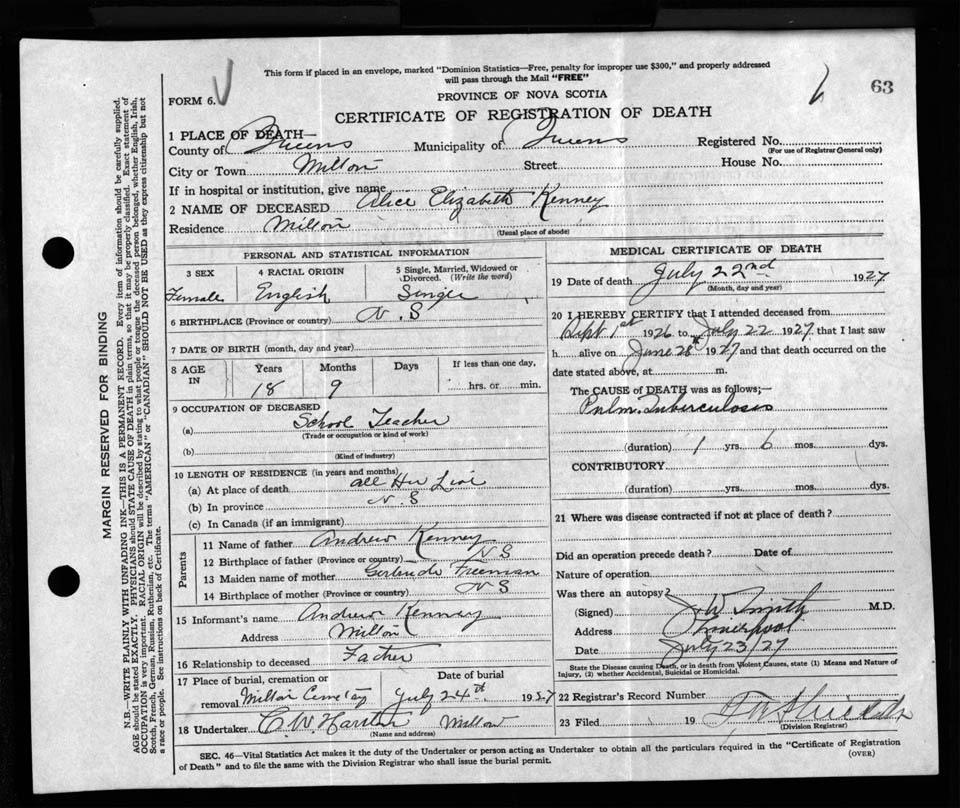 This form if placed in an envelope, marked "Dominion Statistics—Free, penalty for improper use $300," and properly addressed
will pass through the Mail "FREE"
63
FORM 6.
PROVINCE OF NOVA SCOTIA
CERTIFICATE OF REGISTRATION OF DEATH
1 PLACE OF DEATH—
County of Queens Municipality of Queens Registered No.
(For use of Registrar General only)
City or Town Milton Street House No.
If in hospital or institution, give name
2 NAME OF DECEASED Alice Elizabeth Kenney
Residence Milton
(Usual place of abode)
PERSONAL AND STATISTICAL INFORMATION
3 SEX 4 RACIAL ORIGIN 5 Single, Married, Widowed or
Divorced. (Write the word)
Female English Single
6 BIRTHPLACE (Province or country) N.S
7 DATE OF BIRTH (month, day and year)
8 AGE
IN
Years Months Days If less than one day,
18 9 hrs. or min.
9 OCCUPATION OF DECEASED
(a) School Teacher
(Trade or occupation or kind of work)
(b)
(Kind of industry)
10 LENGTH OF RESIDENCE (in years and months)
(a) At place of death all Her
(b) In province N S
(c) In Canada (if an immigrant)
Parents
11 Name of father Andrew Kenney
12 Birthplace of father (Province or country) N S
13 Maiden name of mother Gertrude Freeman
14 Birthplace of mother (Province or country) N S
15 Informant's name Andrew Kenney
Address Milton
16 Relationship to deceased Father
17 Place of burial, cremation or
removal Date of burial
Milton Cemetery July 24th 1927
18 Undertaker C. W. Milton
(Name and address)
MEDICAL CERTIFICATE OF DEATH
19 Date of death July 22nd 1927
(Month, day and year)
20 I HEREBY CERTIFY that I attended deceased from
Sept 1st 1926 to July 22 1927 that I last saw
h alive on June 28 1927 and that death occurred on the
date stated above, at m.
The CAUSE of DEATH was as follows;—
Pulm. Tuberculosis
(duration) 1 yrs. 6 mos. dys.
CONTRIBUTORY
(duration) yrs. mos. dys.
21 Where was disease contracted if not at place of death?
Did an operation precede death? Date of
Nature of operation
Was there an autopsy?
(Signed) J W Smith M.D.
Address Liverpool
Date July 23/27
State the Disease causing Death, or in death from Violent Causes, state (1) Means and Nature of
Injury, (2) whether Accidental, Suicidal or Homicidal.
22 Registrar's Record Number
23 Filed 19
(Division Registrar)
SEC. 46—Vital Statistics Act makes it the duty of the Undertaker or person acting as Undertaker to obtain all the particulars required in the "Certificate of Registration
of Death" and to file the same with the Division Registrar who shall issue the burial permit.
(OVER)
MARGIN RESERVED FOR BINDING
N.B.—WRITE PLAINLY WITH UNFADING INK—THIS IS A PERMANENT RECORD. Every item of information should be carefully supplied.
AGE should be stated EXACTLY. PHYSICIANS should STATE CAUSE OF DEATH in plain terms, so that it may be properly classified. Exact statement of
OCCUPATION is very important. RACIAL ORIGIN will be described by stating to what people or tongue the deceased person belonged, whether English, Irish,
Scotch, French, German, Russian, Ruthenian, etc. The terms "AMERICAN" or "CANADIAN" SHOULD NOT BE USED as they express citizenship but not
a race or people. See instructions on back of Certificate.